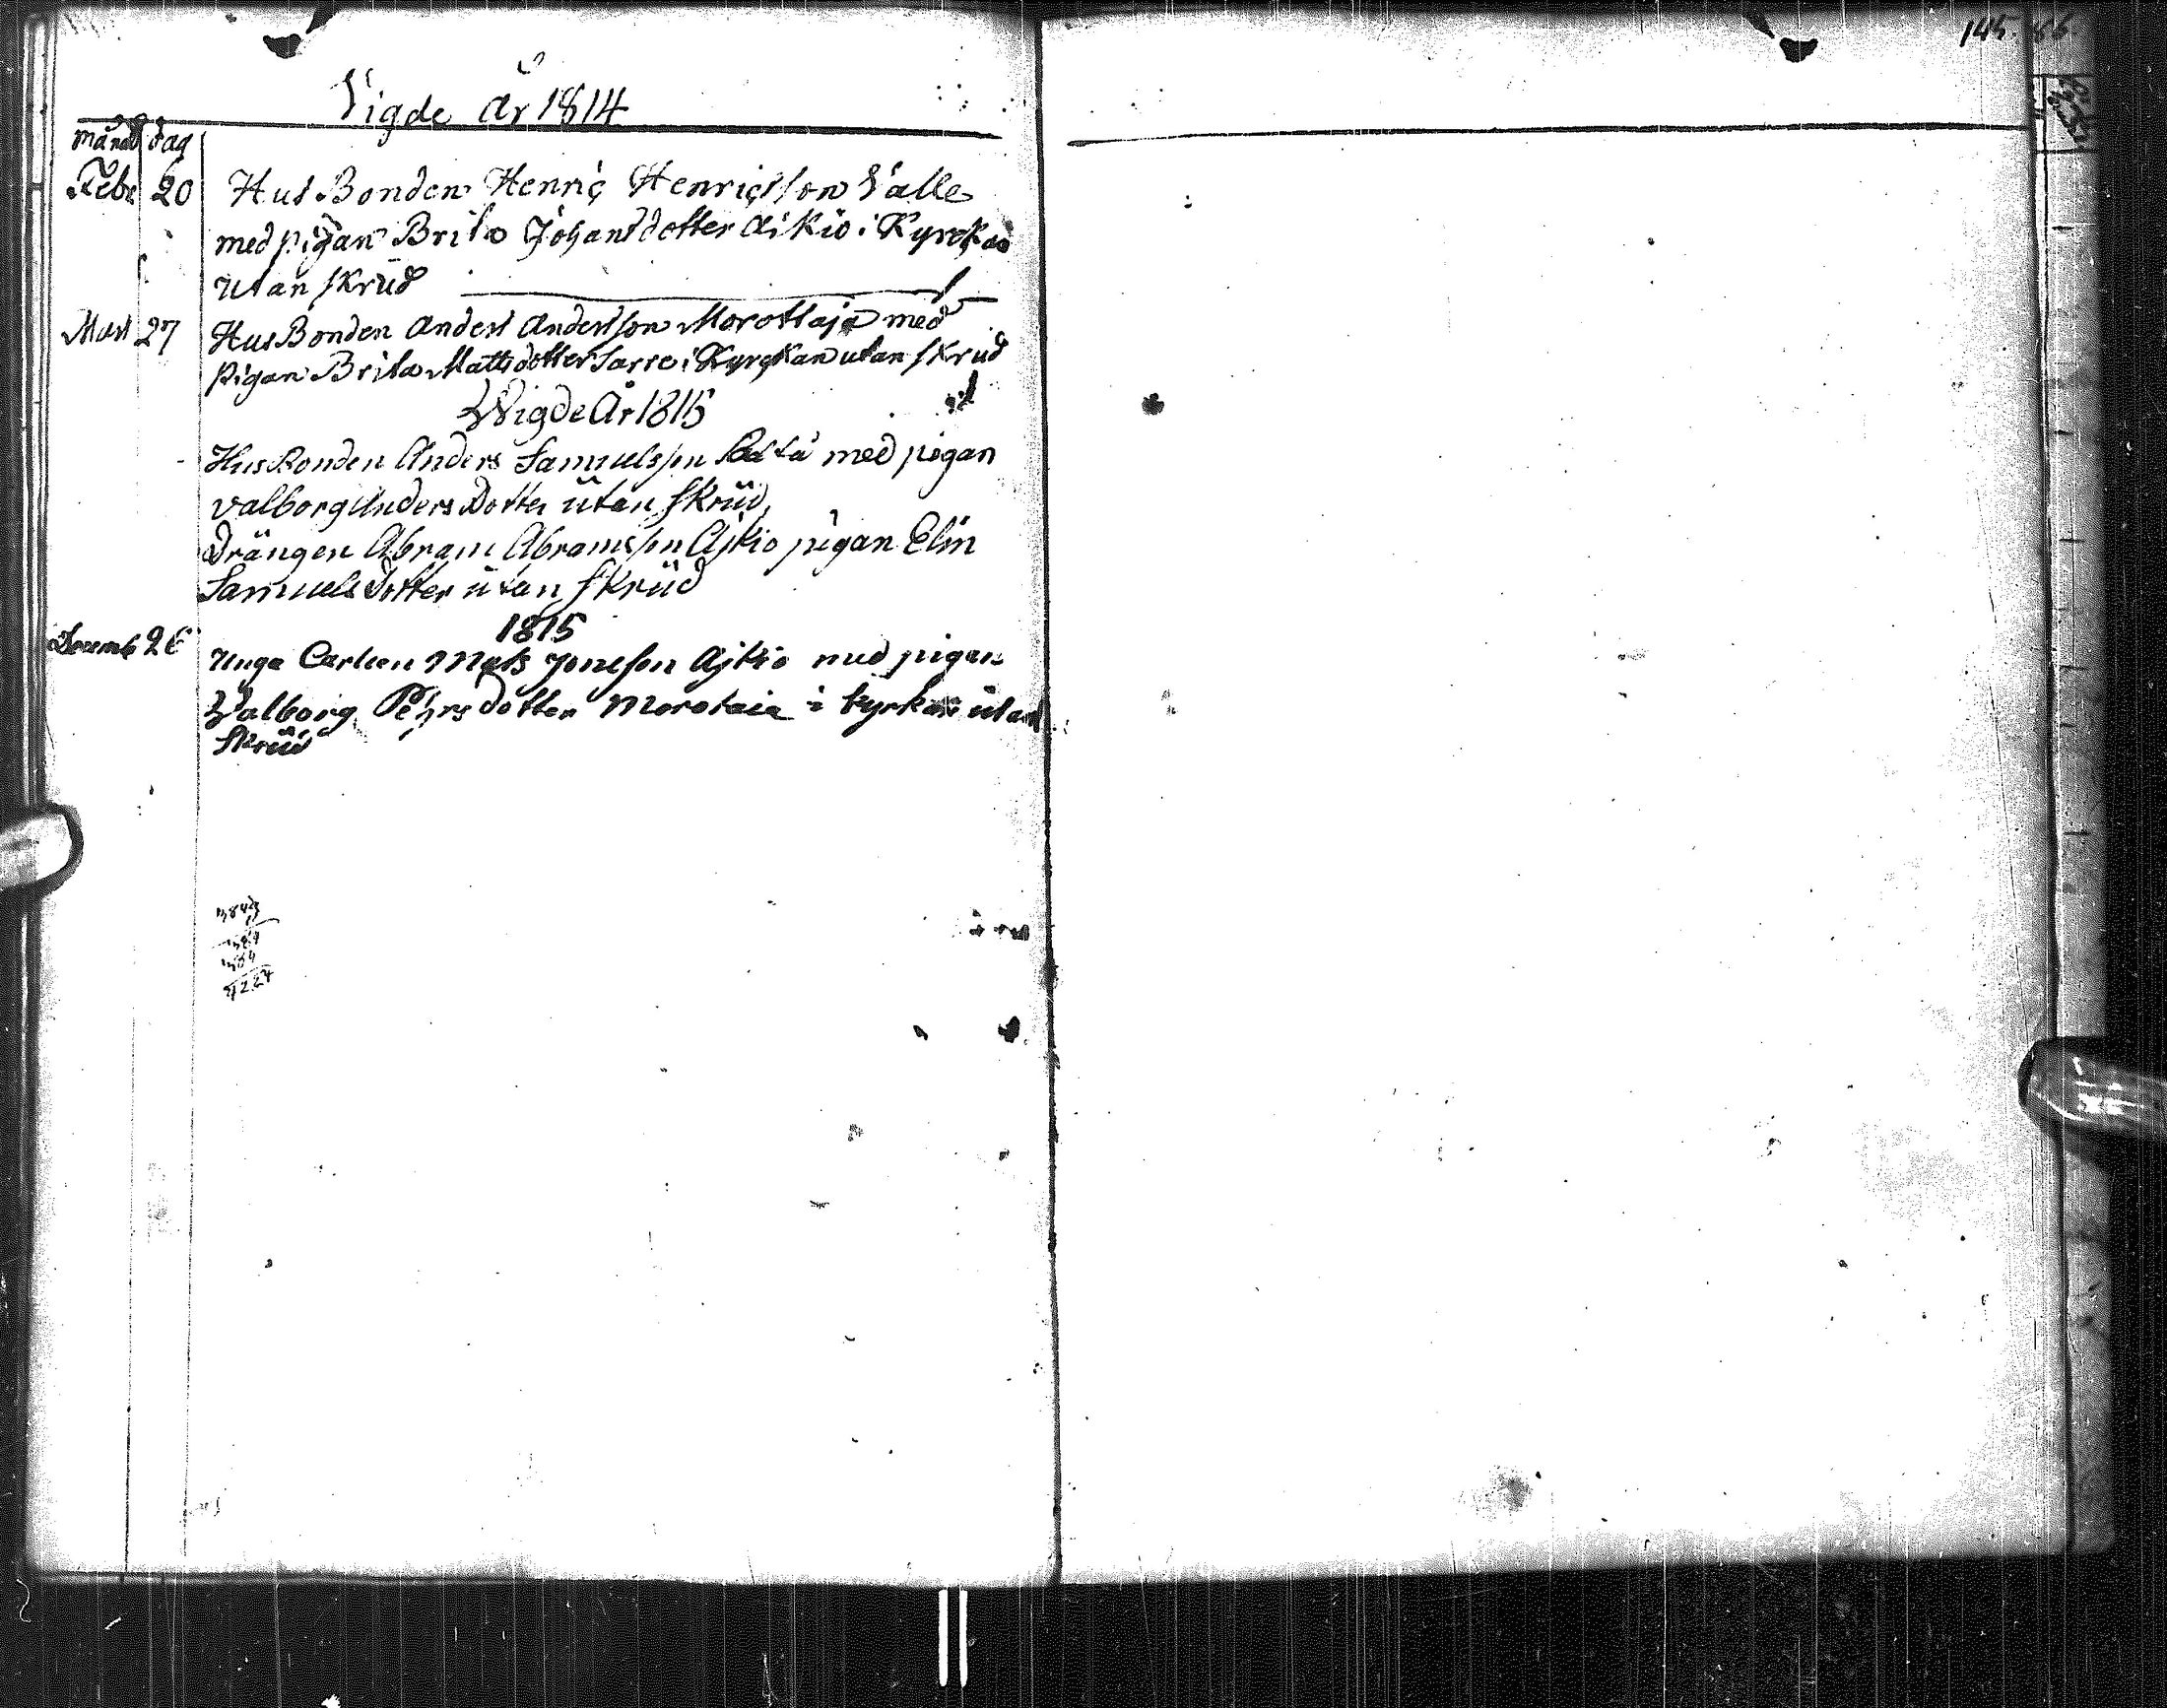 Vigde År 1814
månad dag
Febr 20 HusBonden Henriç Henriçsson Valle
med pigan Brita Johansdotter Aikio i Kyrckan
utan skrud
Mart 27 HusBonden Anders Andersson Morottaja med
pigan Brita Mattsdotter Sarre i Kyrckan utan skrud
Wigde År 1815
HusBonden Anders Samuelsson med pigan
Valborg Anders Dotter utan skrud,
Drängen Abram Abramsson Ajkio pigan Elin
Samuels Dotter utan skrud
1815
Decemb 26 Unga Carlen Mats Jonesson Ajkio med pigan
Valborg Pehrs dotter Morotaia i kyrkan utan
skrud
145.